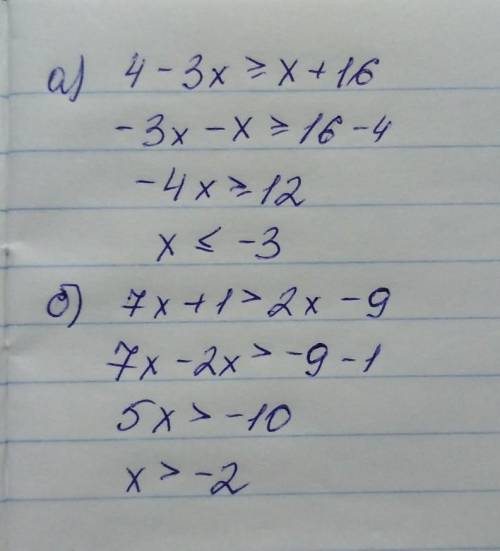 а) 4 - 3x ≥ x + 16
-3x - x ≥ 16 - 4
-4x ≥ 12
x ≤ -3
б) 7x + 1 > 2x - 9
7x - 2x > -9 - 1
5x > -10
x > -2